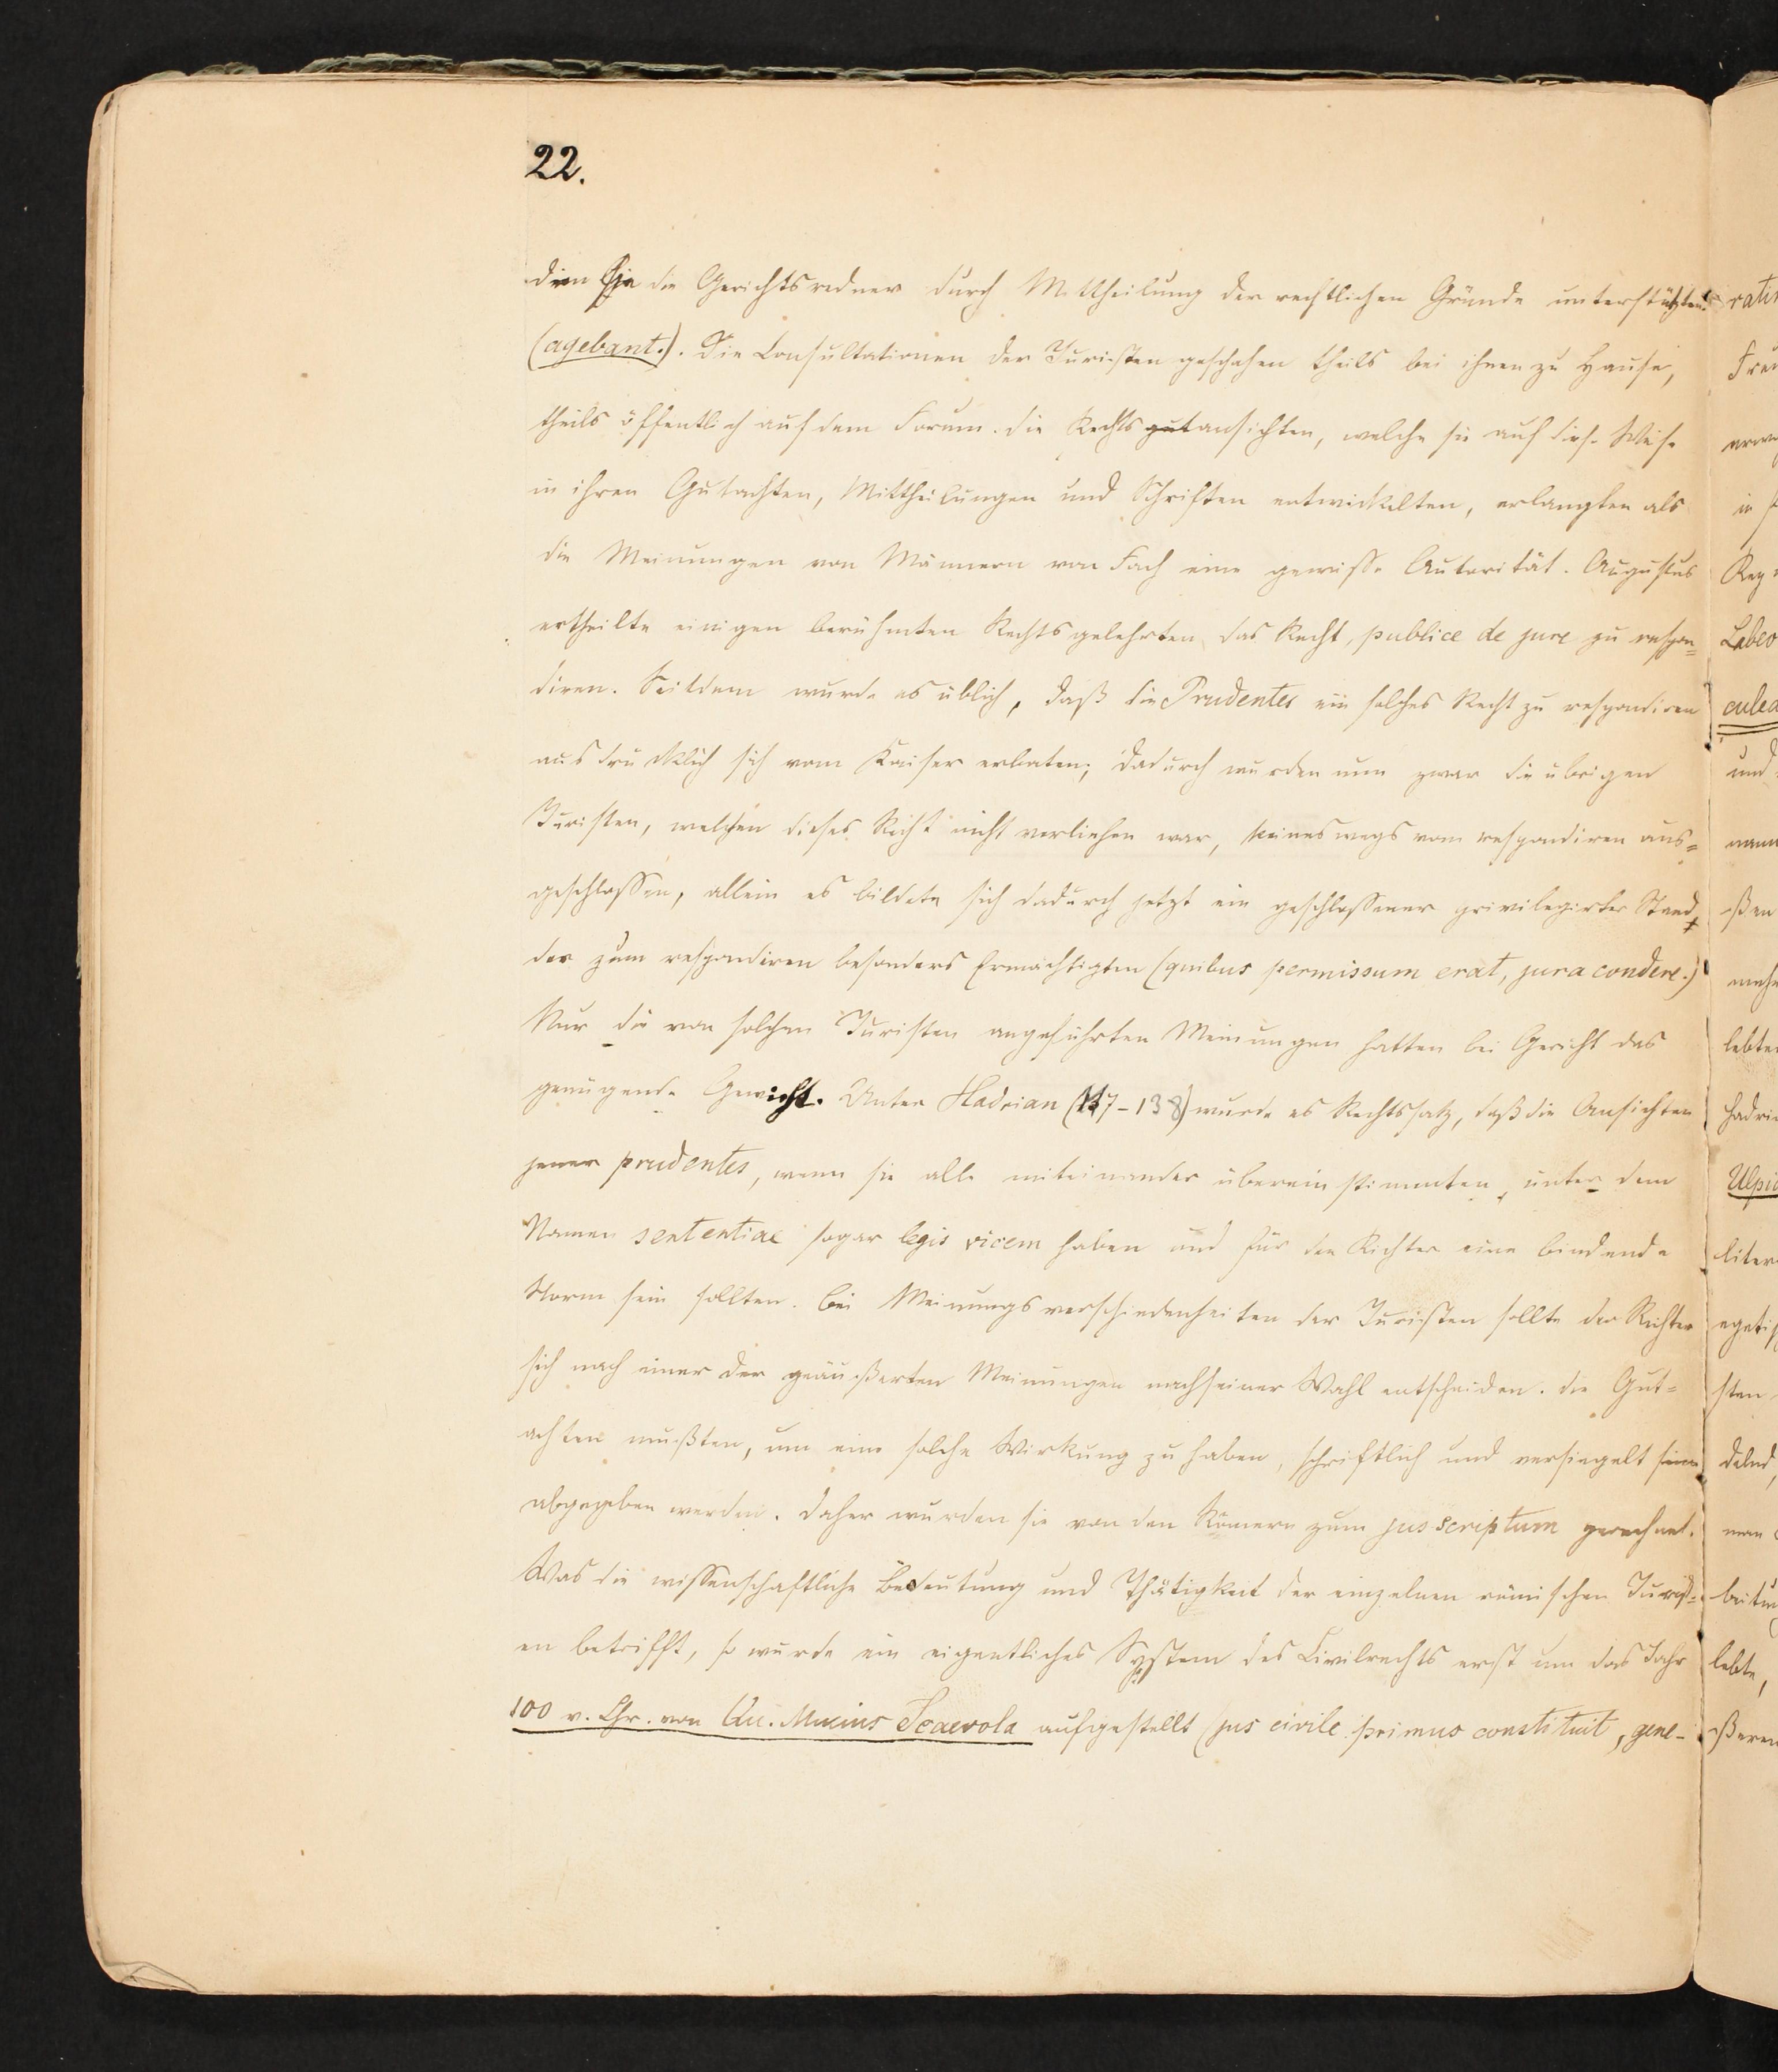 22.
dem sie die Gerichtsredner durch Mittheilung der rechtlichen Gründe unterstützten
(agebant.). Die Consultationen der Juristen geschahen theils bei ihnen zu Hause,
theils öffentlich auf dem Forum. die Rechtsgutansichten, welche sie auf diese Weise
in ihren Gutachten, Mittheilungen und Schriften entwickelten, erlangten als
die Meinungen von Männern von Fach eine gewisse Autorität. Augustus
ertheilte einigen berühmten Rechtsgelehrten das Recht, publice de jure zu respon=
diren. Seitdem wurde es üblich, daß die Prudentes ein solches Recht zu respondiren
ausdrücklich sich vom Kaiser erbaten; dadurch wurden nun zwar die übrigen
Juristen, welchen dieses Recht nicht verliehen war, keineswegs vom respondiren aus=
geschlossen, allein es bildete sich dadurch jetzt ein geschlossener privilegirter Stand
der zum respondiren besonders Ermächtigten (quibus permissum erat, jura condere.)
Nur die von solchen Juristen angeführten Meinungen hatten bei Gericht das
genügende Gewicht. Unter Hadrian (117-138) wurde es Rechtssatz, daß die Ansichten
jener prudentes, wenn sie alle miteinander übereinstimmten, unter dem
Namen sententiae sogar legis vicem haben und für den Richter eine bindende
Norm sein sollten. Bei Meinungsverschiedenheiten der Juristen sollte der Richter
sich nach einer der geäußerten Meinungen nach seiner Wahl entscheiden. die Gut=
achten mußten, um eine solche Wirkung zu haben, schriftlich und versiegelt
abgegeben werden. daher wurden sie von den Römern zum jus scriptum gerechnet.
Was die wissenschaftliche Bedeutung und Thätigkeit der einzelnen römischen Jurist=
en betrifft, so wurde ein eigentliches System des Civilrechts erst um das Jahr
100 v. Chr. von Qu. Mucius Scaevola aufgestellt (jus civile primus constituit, gene-